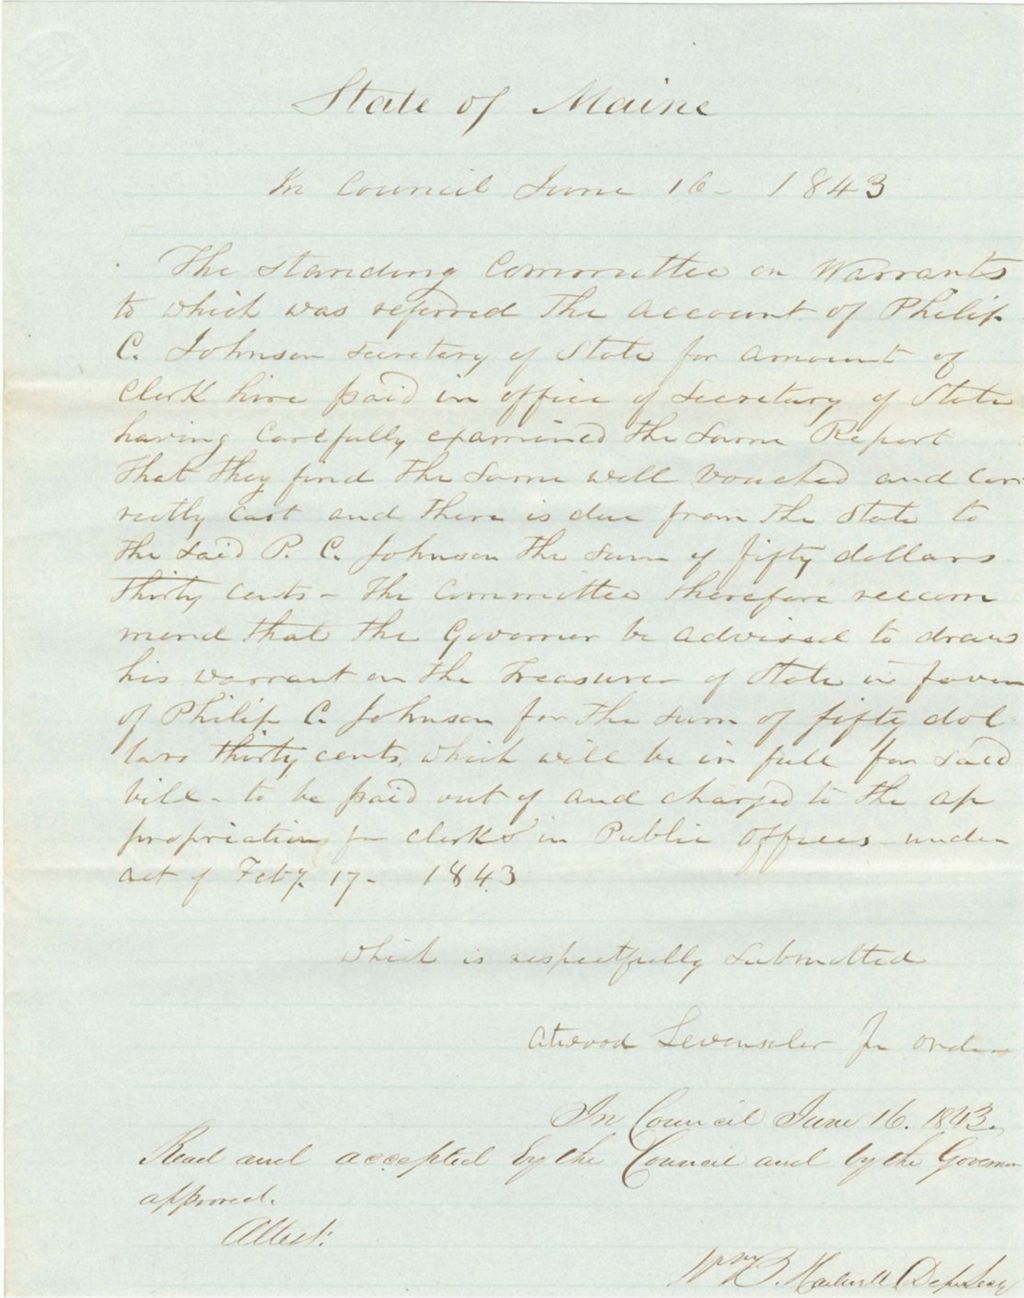 State of Maine
In Council June 16 - 1843
The Standing Committee on Warrants
to which was referred the account of Philip
C. Johnson Secretary of State for amount of
Clerk hire paid in office of Secretary of State
having carefully examined the same Report
that they find the same well vouched and cor
rectly cast and there is due from the State to
the said P. C. Johnson the sum of fifty dollars
thirty cents - The Committee therefore recom
mend that the Governor be advised to draw
his warrant on the Treasurer of State in favor
of Philip C. Johnson for the sum of fifty dol
lars thirty cents, which will be in full for said
bill - to be paid out of and charged to the ap
propriation for clerks in Public offices under
act of Feby. 17 - 1843
Which is respectfully submitted
Atwood Levensaler for order
In Council June 16. 1843.
Read and accepted by the Council and by the Governor
approved.
Attest:
Wm B. Hartwell Dep. Secy